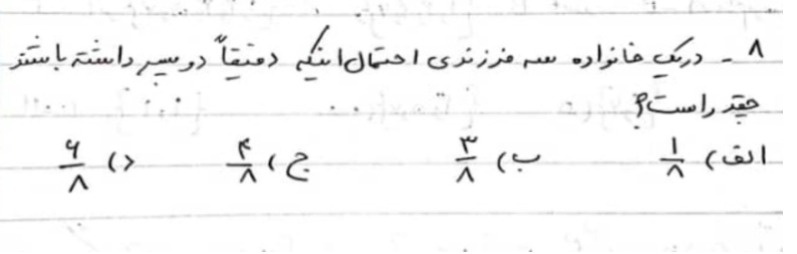 ۸ - در یک خانواده سه فرزندی احتمال اینکه دقیقاً دو پسر داشته باشند
چقدر است؟
الف) ۱/۸ ب) ۳/۸ ج) ۴/۸ د) ۶/۸